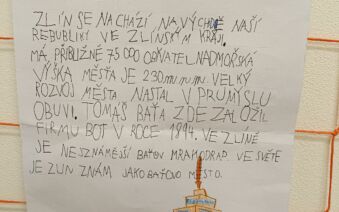 ZLÍN SE NACHÁZÍ NA VÝCHODĚ NAŠÍ
REBUBLIKY VE ZLÍNSKÝM KRAJI.
MÁ PŘIBLIŽNĚ 75 000 OBYVATEL NADMOŘSKÁ
VÝŠKA MĚSTA JE 230 m n. m. VELKÝ
ROZVOJ MĚSTA NASTAL V PRŮMYSLU
OBUVI. TOMÁŠ BAŤA ZDE ZALOŽIL
FIRMU BOT V ROCE 1894. VE ZLÍNĚ
JE NEJSZNÁMĚJŠÍ BAŤOV MRAKODRAP. VE SVĚTĚ
JE ZLÍN ZNÁM JAKO BAŤOVO MĚSTO.